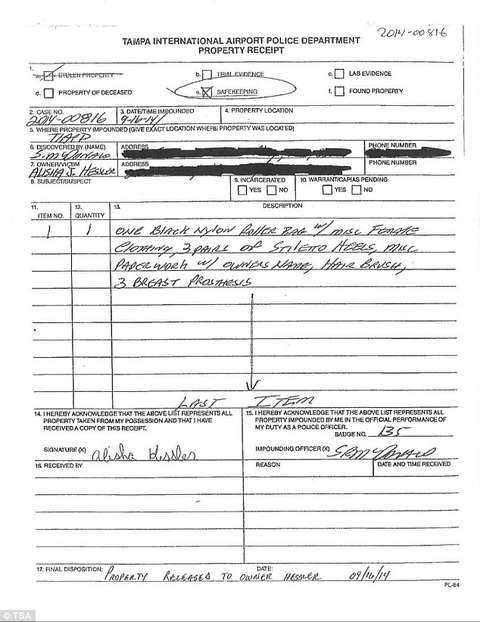 2014-00816
TAMPA INTERNATIONAL AIRPORT POLICE DEPARTMENT
PROPERTY RECEIPT
1.
a. STOLEN PROPERTY b. TRIAL EVIDENCE c. LAB EVIDENCE
d. PROPERTY OF DECEASED e. SAFEKEEPING f. FOUND PROPERTY
2. CASE NO. 3. DATE/TIME IMPOUNDED 4. PROPERTY LOCATION
2014-00816 9-16-14
5. WHERE PROPERTY IMPOUNDED (GIVE EXACT LOCATION WHERE PROPERTY WAS LOCATED)
TIAPD
6. DISCOVERED BY (NAME) ADDRESS PHONE NUMBER
7. OWNER/VICTIM ADDRESS PHONE NUMBER
ALISHA J. HESSLER
8. SUBJECT/SUSPECT 9. INCARCERATED 10. WARRANT/CAPIAS PENDING
YES NO YES NO
11. 12. 13. DESCRIPTION
ITEM NO. QUANTITY
1 1 ONE BLACK NYLON ROLLER BAG W/ MISC FEMALE
CLOTHING, 3 PAIRS OF STILETO HEELS, MISC
PAPERWORK W/ OWNERS NAME, HAIR BRUSH,
3 BREAST PROSTHESIS
LAST ITEM
14. I HEREBY ACKNOWLEDGE THAT THE ABOVE LIST REPRESENTS ALL
PROPERTY TAKEN FROM MY POSSESSION AND THAT I HAVE
RECEIVED A COPY OF THIS RECEIPT.
SIGNATURE (X) Alisha Hessler
15. I HEREBY ACKNOWLEDGE THAT THE ABOVE LIST REPRESENTS ALL
PROPERTY IMPOUNDED BY ME IN THE OFFICIAL PERFORMANCE OF
MY DUTY AS A POLICE OFFICER.
BADGE NO. 135
IMPOUNDING OFFICER (X)
16. RECEIVED BY REASON DATE AND TIME RECEIVED
17. FINAL DISPOSITION: DATE:
PROPERTY RELEASED TO OWNER HESSLER 09/16/14
PL-84
© TSA